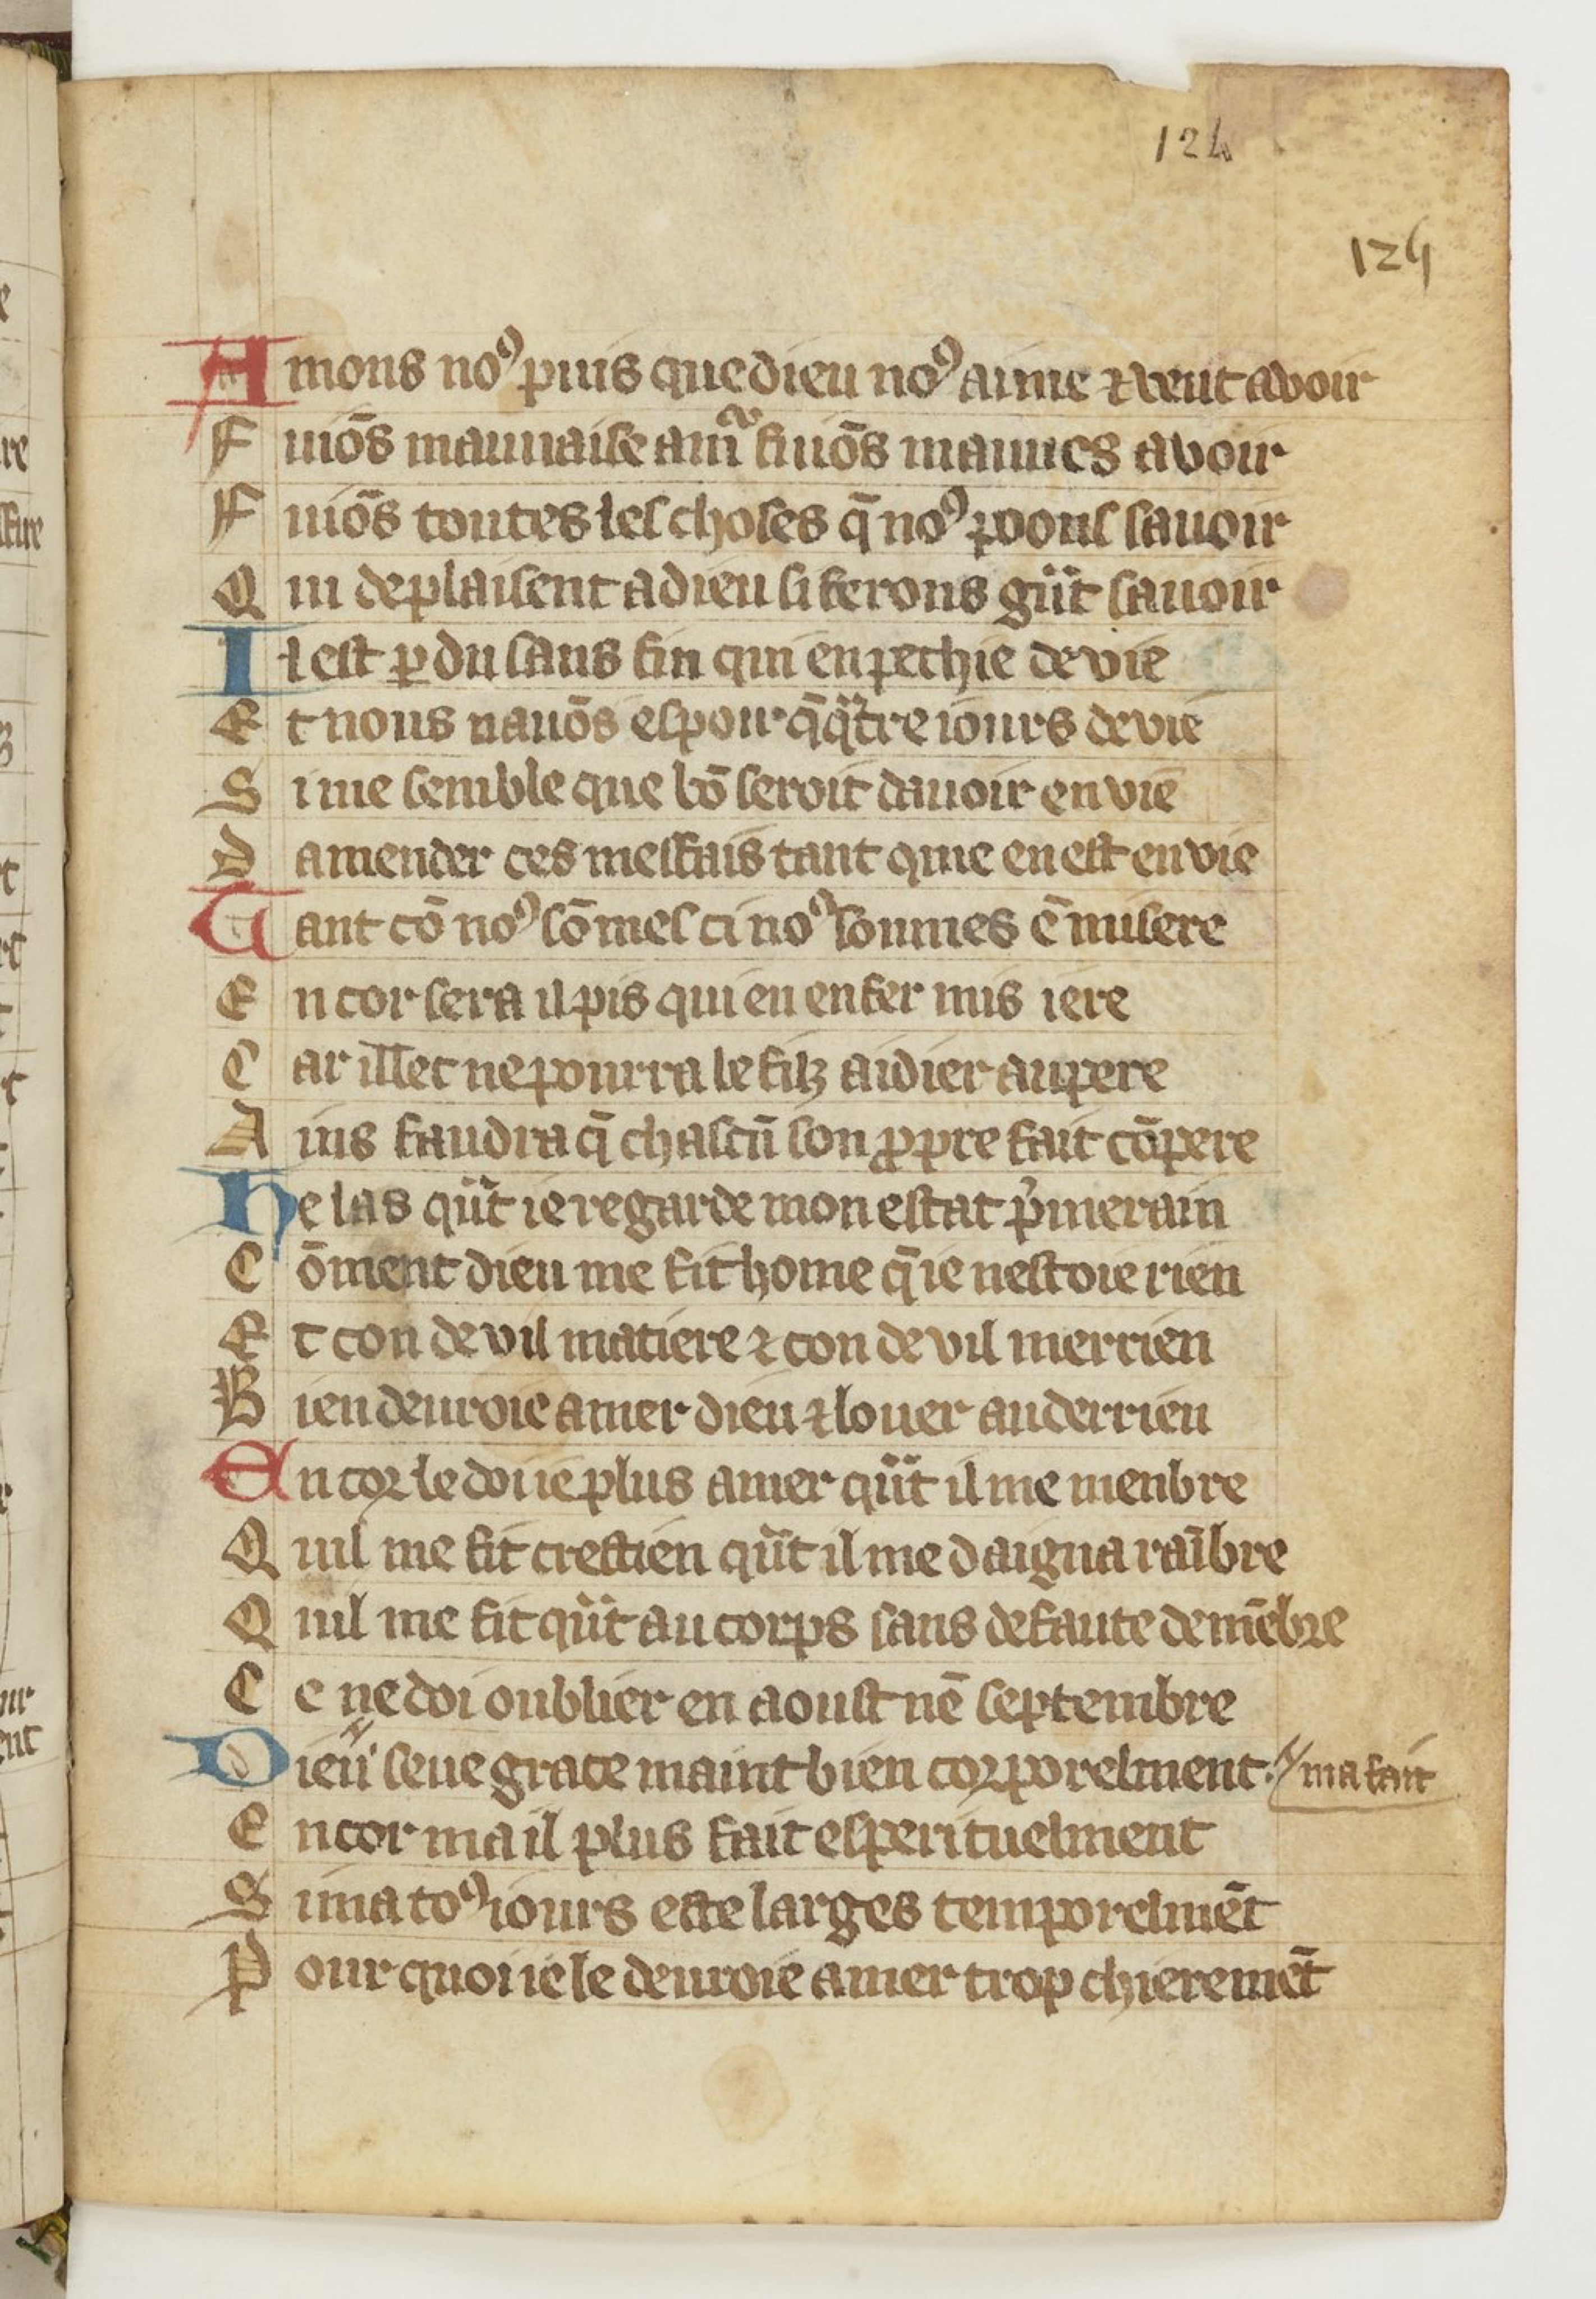 124
124
Amons noꝰ puis que dieu noꝰ aime ⁊ veut avoir
Fuiōs mauuaise amͬ fuiōs mauues avoir
Fuiōs toutes les choses q̄ noꝰ poons sauoir
Qui deplaisent a dieu si ferons gͣnt sauoir
Il est ꝑdu sans fin qui en pechie devie
Et nous nauōs espoir q̄ qͣtre iours de vie
Si me semble que bō seroit dauoir envie
Damender ces mesfais tant qme en est en vie
Tant cō noꝰ sōmes ci noꝰ sommes ē misere
Encor sera il pis qui en enfer mis iere
Car illec ne pourra le filz aidier au pere
Ains faudra q̄ chascū son ꝓpre fait cōpere
He las qͣnt ie regarde mon estat pͥmerain
Cōment dieu me fit home q̄ ie nestoie rien
Et con de vil matiere ⁊ con de vil merrien
Bien deuroie amer dieu ⁊ louer au derrien
Encor le doi ie plus amer qͣnt il me menbre
Quil me fit crestien qͣnt il me daigna raībre
Quil me fit qͣnt au corps sans defaute de mēbre
Ce ne doi oublier en aoust nē septembre
Dieu〃 seue grace maint bien corporelment 〃 ma fait
Encor ma il plus fait esperituelment
Si ma toꝰ iours este larges temporelmēt
Pour quoi ie le deuroie amer trop chieremēt